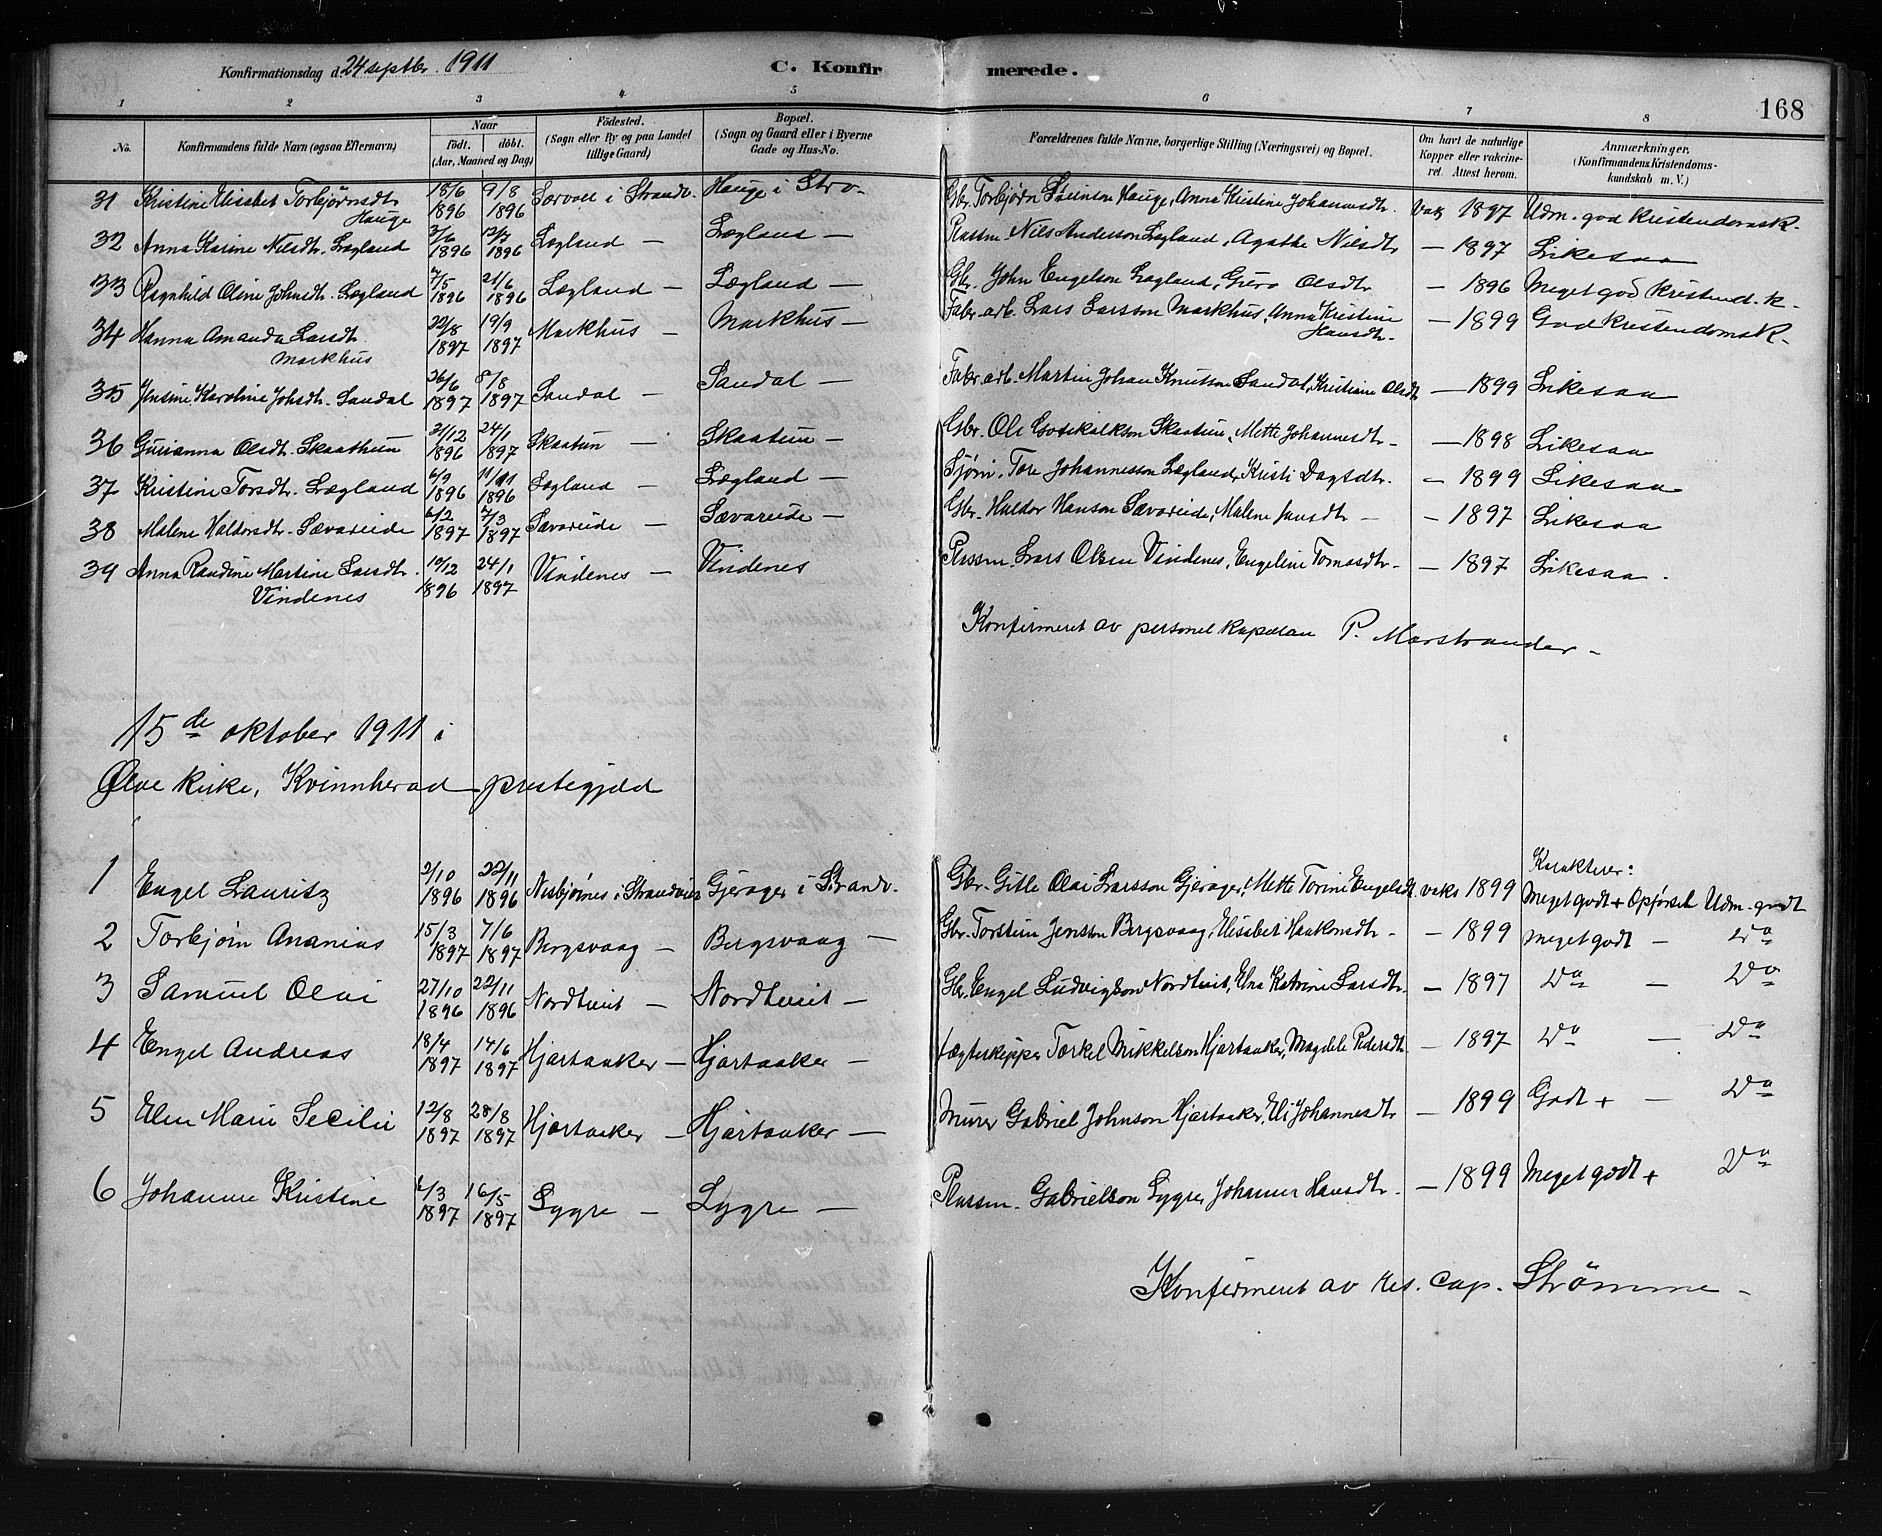 Konfirmationsdag d. 24 septbr. 1911
C. Konfirmerede.
168
1 2 3 4 5 6 7 8
No.
Konfirmandens fulde Navn (ogsaa Efternavn)
Naar
födt. döbt.
(Aar, Maaned og Dag)
Födested.
(Sogn eller By og paa Landet tillige Gaard)
Bopæl.
(Sogn og Gaard eller i Byerne Gade og Hus-No.
Forældrenes fulde Navne, borgerlige Stilling (Næringsvei) og Bopæl.
Om havt de naturlige Kopper eller vakcineret. Attest herom.
Anmærkninger.
(Konfirmandens Kristendomskundskab m. V.)
31 Kristine Elisabet Torbjørnsdtr Hauge 18/6 1896 9/8 1896 i Strandv. Hauge i Strv. Gbr. Torbjørn Hauge, Anna Kristine Johannesdtr. vaks 1897 Udm. god kristendomsk.
32 Anna Karine Nilsdtr. Lægland 1896 1896 Lægland — Lægland — Plassm. Nils Anderson Lægland, Agathe Nilsdtr — 1897 Likesaa
33 Ragnhild Oline Johnsdtr. Lægland 7/5 1896 21/6 1896 Lægland — Lægland — Gbr. John Engelson Lægland, Guro Olsdtr — 1896 Meget god kristend.k.
34 Hanna Amanda Larsdtr. Markhus 22/8 1897 19/9 1897 Markhus — Markhus — Fabr.arb. Lars Larsson Markhus, Anna Kristine Hansdtr. — 1899 God kristendomsk.
35 Jensine Karoline Johsdtr. Sandal 26/6 1897 8/8 1897 Sandal — Sandal — Fabr.arb. Martin Johan Knutson Sandal, Kristiane Olsdtr — 1899 Likesaa
36 Gurianna Olsdtr. Skaathun 21/12 1896 24/1 1897 Skaatun — Skaatun — Gbr. Ole Gotskalkson Skaatun, Mette Johannesdtr — 1898 Likesaa
37 Kristine Torsdtr. Lægland 6/9 1896 11/11 1896 Lægland — Lægland — Sjøm. Tore Johannesson Lægland, Kristi Dagsdtr. — 1899 Likesaa
38 Malene Haldorsdtr. Sævareide 6/2 1897 7/3 1897 Sævareide — Sævareide — Gbr. Haldor Hanson Sævareide, Malene Jansdtr — 1897 Likesaa
39 Anna Randine Martine Larsdtr. Vindenes 10/12 1896 24/1 1897 Vindenes — Vindenes Plassm. Lars Olsen Vindenes, Engeline Tomasdtr. — 1897 Likesaa.
Konfirmeret av personel kapelan P. Marstrander —
15de oktober 1911 i
Ølve kirke, Kvinnherad prestegjeld
Karakterer:
1 Engel Lauritz 2/10 1896 22/11 1896 Nesbjørnes i Strandvik Gjerager i Strandv. Gbr. Gitle Olai Larsson Gjerager, Mette Torine Engelsdt. vaks 1899 Meget godt + Opførsel Udm. godt
2 Torbjørn Ananias 15/3 1897 7/6 1897 Bergsvaag — Bergsvaag — Gbr. Torstein Jensson Bergsvaag, Elisabet Haakonsdtr — 1899 Meget godt — Do
3 Samuel Olai 27/10 1896 22/11 1896 Nordtveit — Nordtveit — Gbr. Engel Ludvigson Nordtveit, Katrine Larsdtr. — 1897 Do — Do
4 Engel Andreas 18/4 1897 14/6 1897 Hjartaaker — Hjartaaker — Jægtskipper Tærkel Mikkelson Hjartaaker, Magdele Pedersdtr. — 1897 Do — Do
5 Elen Marie Secilie 12/8 1897 28/8 1897 Hjartaaker — Hjartaaker — Murer Gabriel Johnson Hjartaaker, Eli Johannesdtr — 1899 Godt + — Do
6 Johanne Kristine 6/3 1897 16/5 1897 Lygre — Lygre — Plassm. Gabrielson Lygre, Johanne Hansdtr. — 1899 Meget godt + Do
Konfirmeret av res. cap. Strømme —